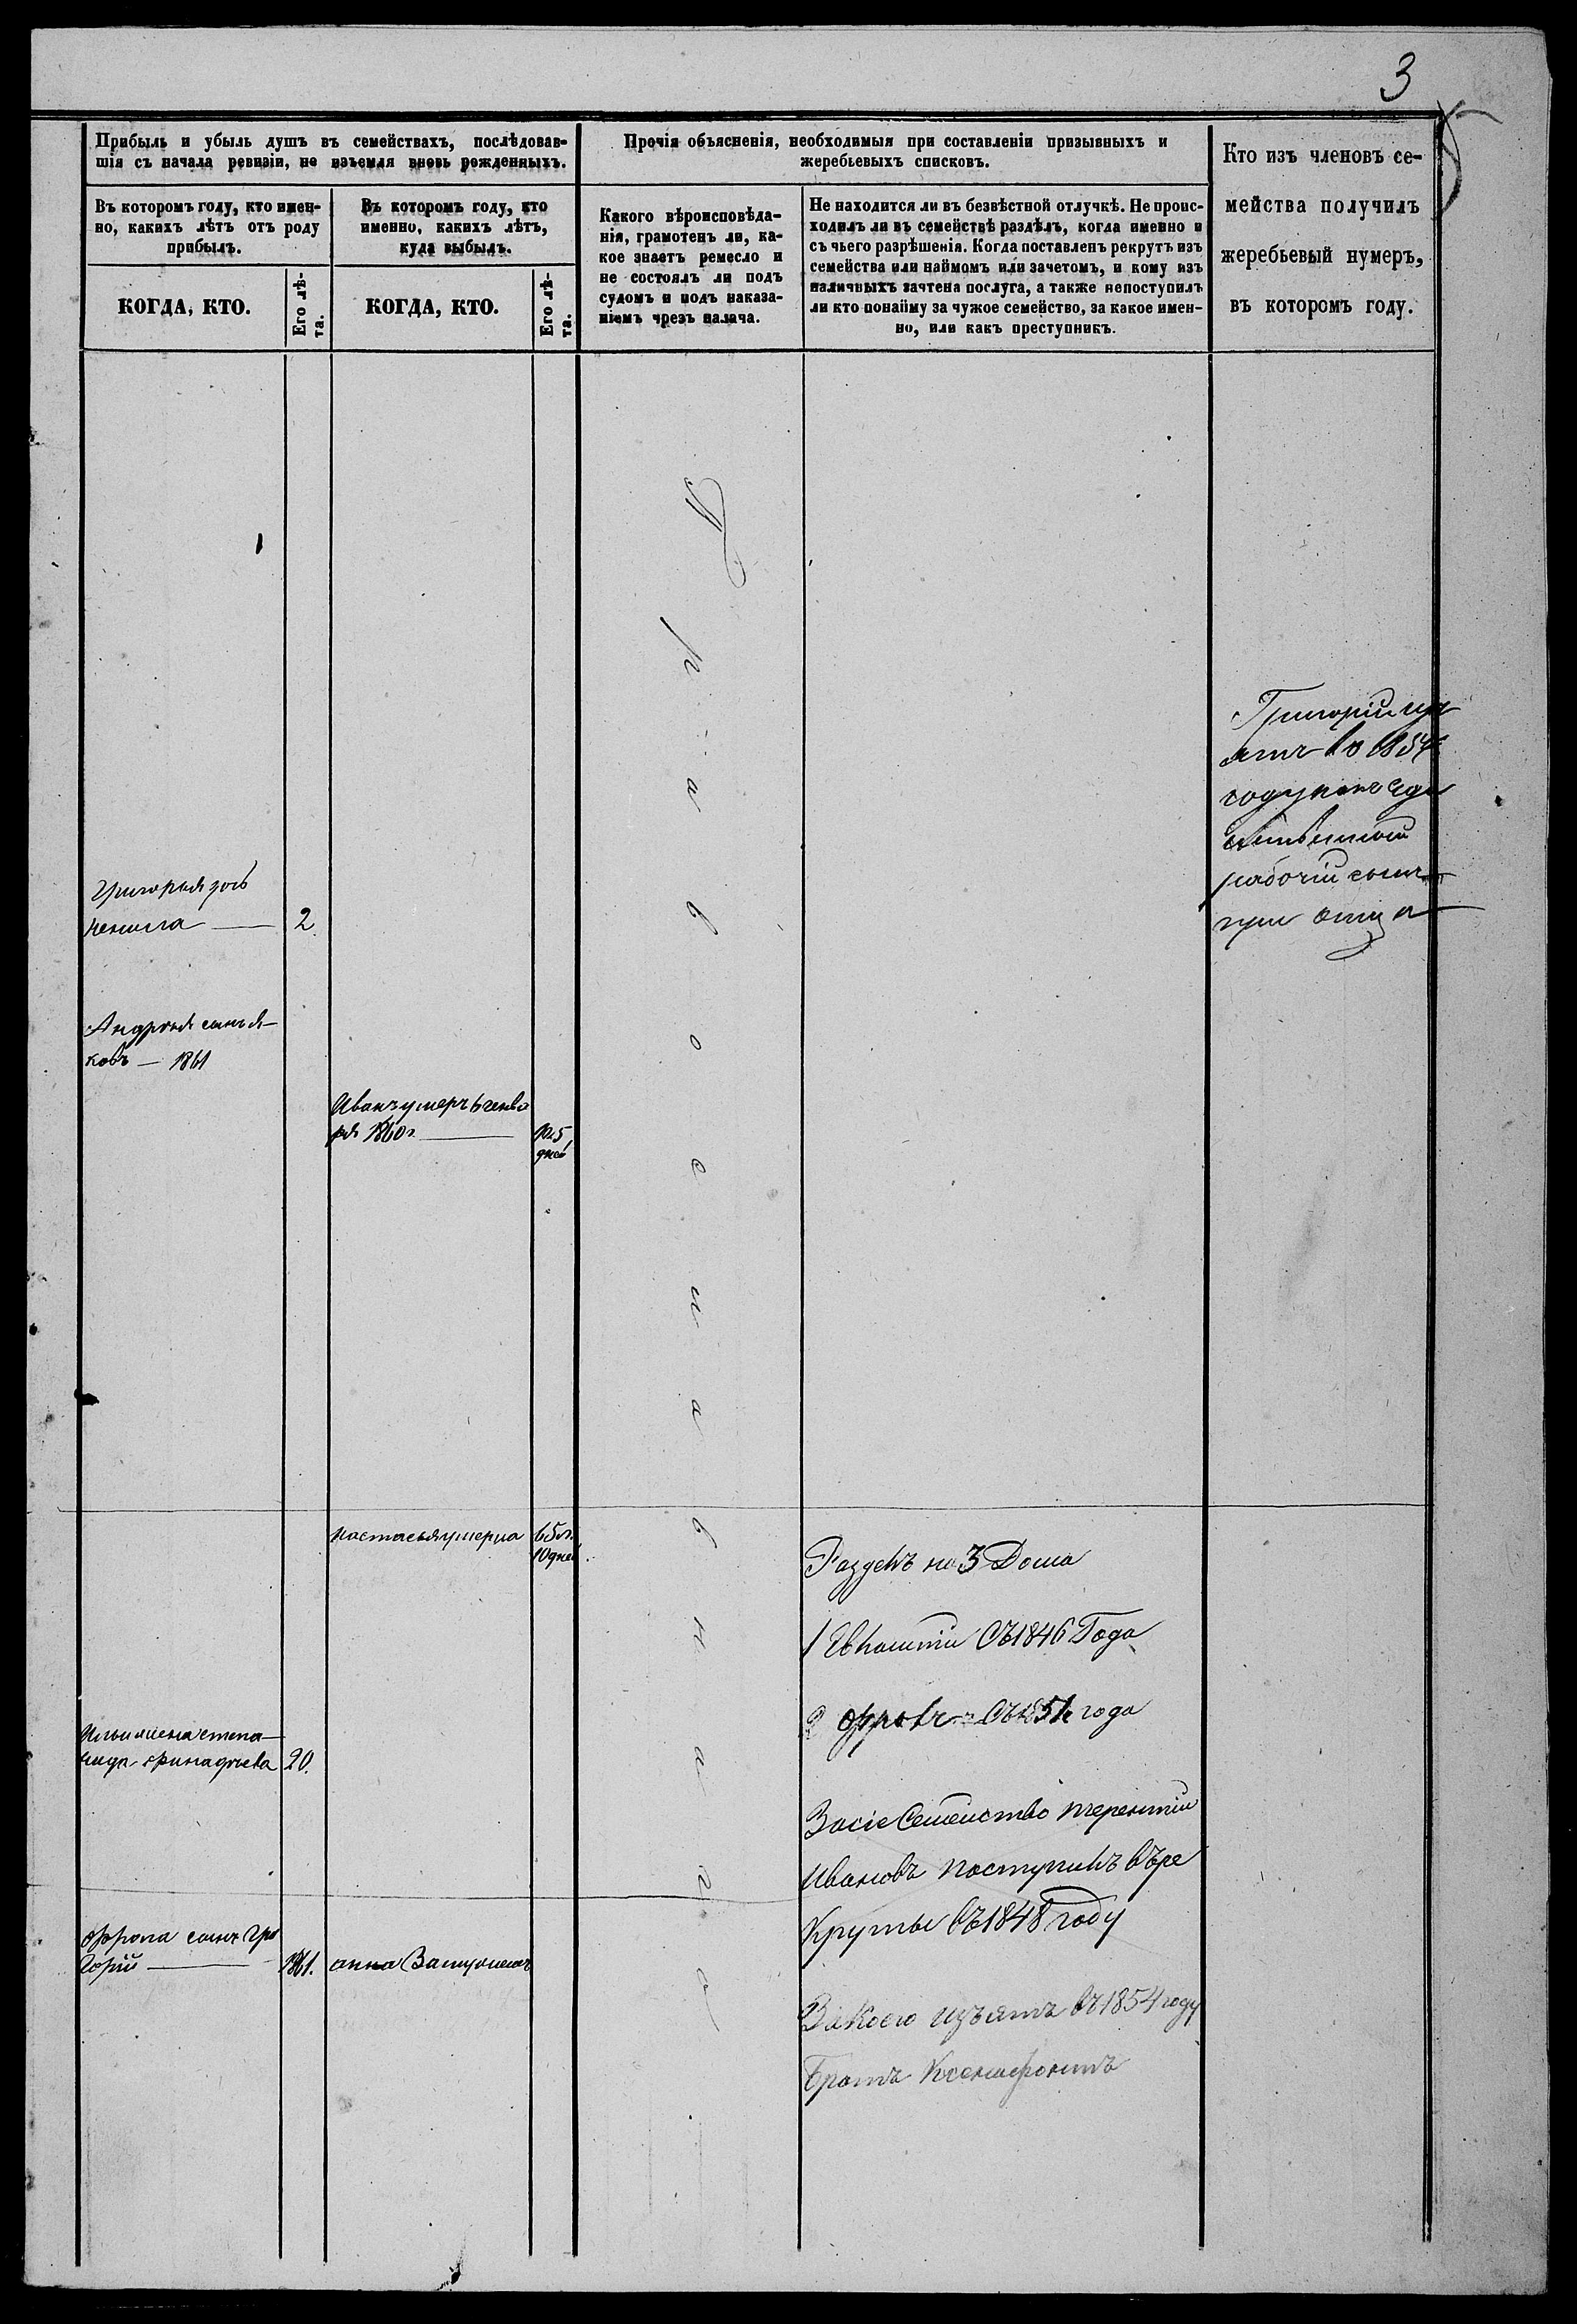 3
Прибыль и убыль душъ въ семействахъ, послѣдовав-
шія съ начала ревизіи, не изъемля вновь рожденныхъ.
Прочія объясненія, необходимыя при составленіи призывныхъ и
жеребьевыхъ списковъ.
Кто изъ членовъ се-
мейства получилъ
жеребьевый нумеръ,
въ которомъ году.
Въ которомъ году, кто имен-
но, какихъ лѣтъ отъ роду
прибылъ.
Въ которомъ году, кто
именно, какихъ лѣтъ,
куда выбылъ.
Какого вѣроисповѣда-
нія, грамотенъ ли, ка-
кое знаетъ ремесло и
не состоялъ ли подъ
судомъ и подъ наказа-
ніемъ чрезъ палача.
Не находится ли въ безвѣстной отлучкѣ. Не проис-
ходилъ ли въ семействѣ раздѣлъ, когда именно и
съ чьего разрѣшенія. Когда поставленъ рекрутъ изъ
семейства или наймомъ или зачетомъ, и кому изъ
наличныхъ зачтена послуга, а также непоступилъ
ли кто понайму за чужое семейство, за какое имен-
но, или какъ преступникъ.
КОГДА, КТО.
Его лѣ-
та.
КОГДА, КТО.
Его лѣ-
та.
Григорій изъ
ятъ во 1854
году какъ еди
ственный
рабочій сынъ
при отцѣ
Григорья дочь
2
Андрея сынъ я-
ковъ — 1861
Иванъ умеръ генва
ря 1860 г.
дней
Православнаго
настасья умерла
65 л.
10 дней
Раздѣлъ на 3 Дома
1 Съ 1846 Года
2 года
Ильи жена степа-
нида 20.
За сіе Семейство терентій
Ивановъ поступилъ въ ре
круты въ 1848 году
сынъ Гри
горій — 1861.
анна Замужемъ
За коего изъятъ въ 1854 году
Братъ Ксенофонтъ